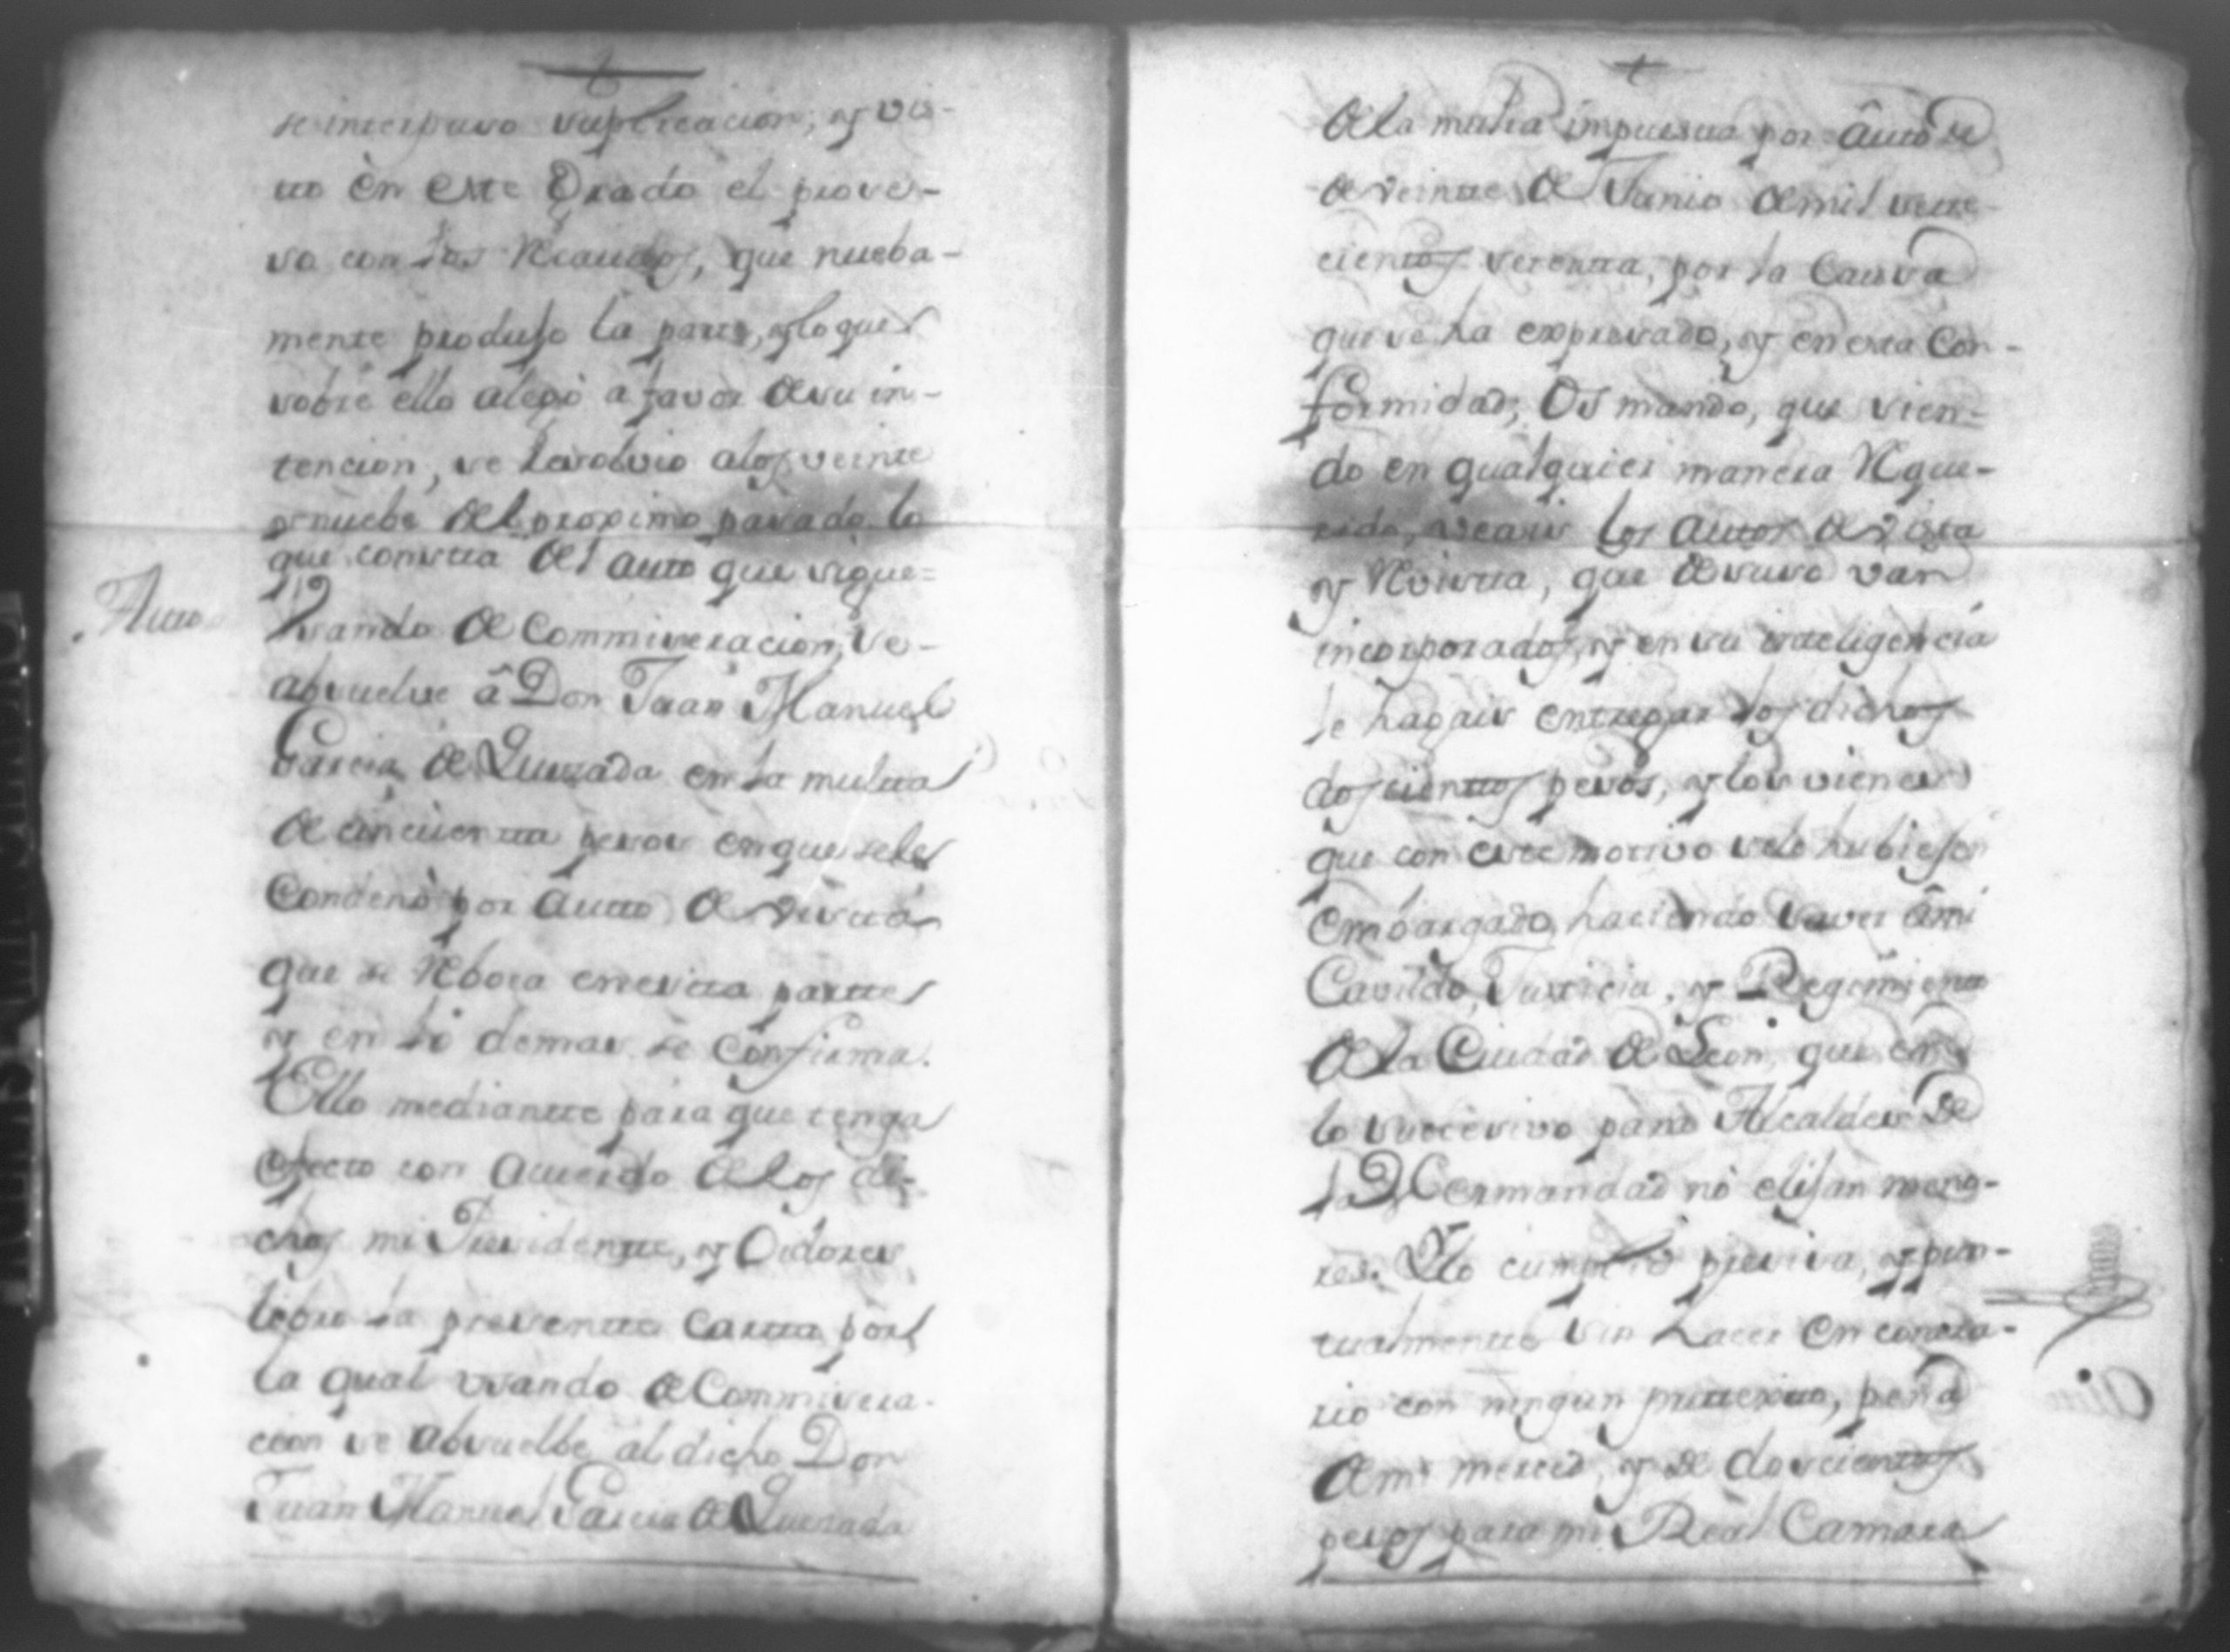 se interpuso suplicacion, y vis-
to èn este Grado el proce-
so con los Recaudos, que nueba-
mente produjo la parte, y lo que
sobre ello alegò a favor de su in-
tencion, se devolvio a los veinte
y nuebe del proximo pasado lo
que consta del auto que sigue=
Auto
Usando de Commiseracion, se-
absuelve â Don Juan Manuel
Garcia de Quezada en la multa
de cincuenta pesos en que se le
Condenò por autto de vista
que se Reboca en esta parte
y en lo demas se Confirma.
Ello mediante para que tenga
efecto con acuerdo de los di-
chos mi Presidente, y Oidores
libro la presente Carta por
la qual usando de Commisera-
cion se absuelbe al dicho Don
Juan Manuel Garcia de Quezada
de la multa impuesta por âuto de
de veinte de Junio de mil sete-
cientos setenta, por la Causa
que se ha expresado, y en esta Con-
formidad, Os mando, que sien-
do en qualquier manera Reque-
rido, veais los autos de vista
y Revista, que de suso van
incorporados, y en su inteligencia
le hagais entregar los dichos
doscientos pesos, y los vienes
que con este motivo se le hubiesen
embargado, haciendo saver â mi
Cavildo, Justicia, y Regimiento
de la Ciudad de Leon, que en
lo succesivo para Alcaldes de
la Hermandad nò elijan meno-
res. Y lo cumplid precisa, y pun-
tualmente sin hacer en contra-
rio con ningun pretexto, pena
de mi merced, y de doscientos
pesos para mi Real Camara